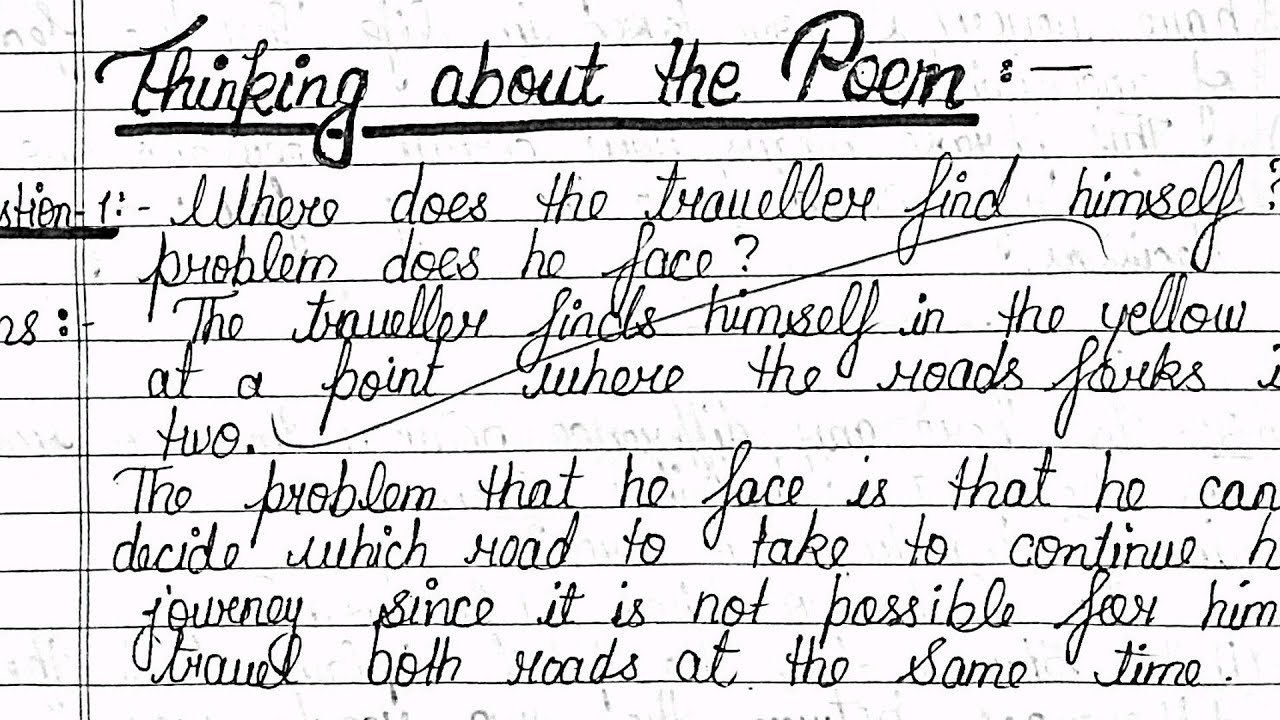 Thinking about the Poem :-
stion-1:- Where does the traveller find himself?
problem does he face?
ns:- The traveller finds himself in the yellow
at a point where the roads forks i
two.
The problem that he face is that he can
decide which road to take to continue h
journey since it is not possible for him
travel both roads at the same time.